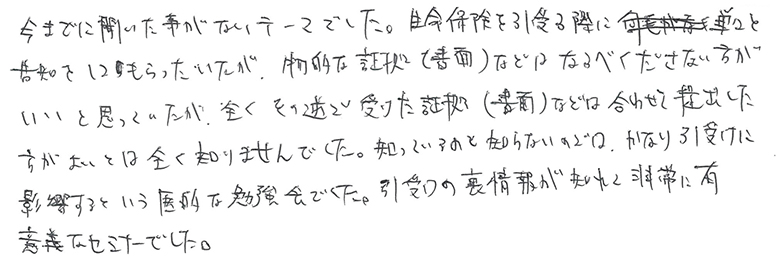 今までに聞いた事がないテーマでした。生命保険を引受る際に
告知をしてもらっていたが、物的な証拠(書面)などはなるべくださない方が
いいと思っていたが、全くその逆で受けた証拠(書面)などは合わせて提出した
方がよいとは全く知りませんでした。知っているのと知らないのでは、かなり引受けに
影響するという画期的な勉強会でした。引受けの裏情報が知れて非常に有
意義なセミナーでした。